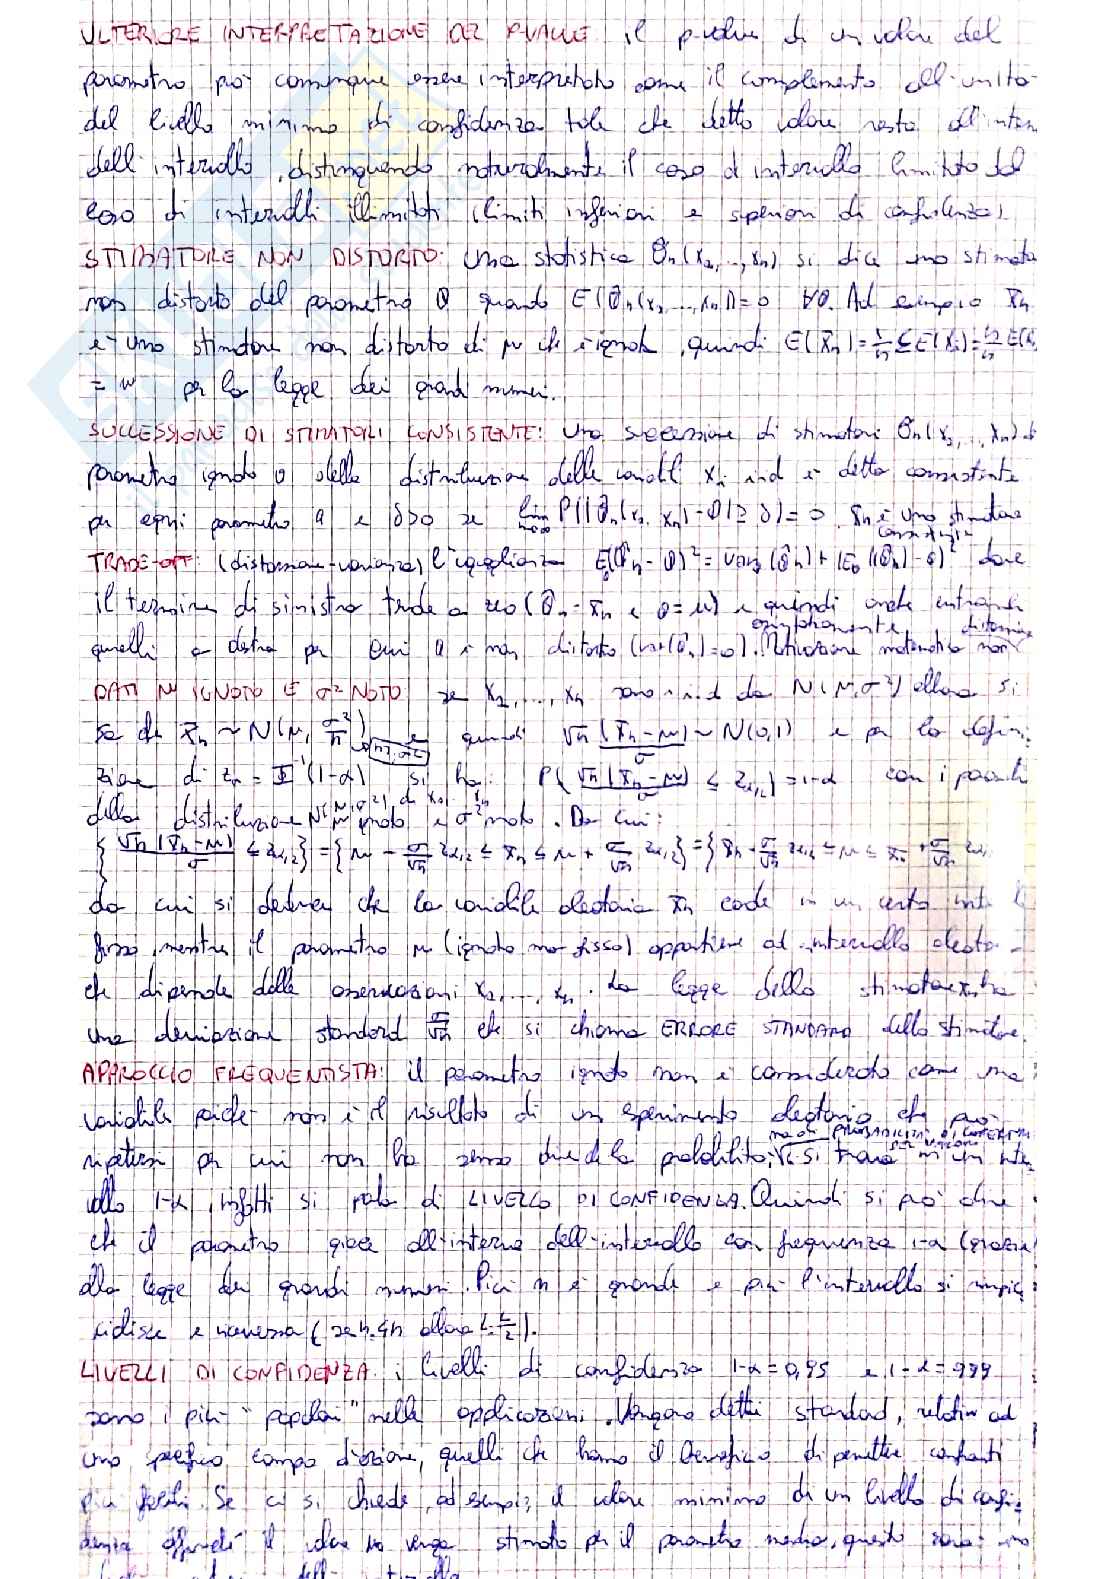 ULTERIORE INTERPRETAZIONE DEL P-VALUE il p-value di un valore del
parametro può comunque essere interpretato come il complemento all'unità
del livello minimo di confidenza tale che detto valore resta all'inter
dell'intervallo, distinguendo naturalmente il caso di intervallo limitato dal
caso di intervalli illimitati (limiti inferiori e superiori di confidenza).
STIMATORE NON DISTORTO: una statistica θ̂n(x1,..,xn) si dice uno stimato
non distorto del parametro θ quando E(θ̂n(x1,...,xn))=θ ∀θ. Ad esempio x̄n
è uno stimatore non distorto di μ che è ignota, quindi E(x̄n)=1/n ΣE(xi)=n/n E(xi
= μ per la legge dei grandi numeri.
SUCCESSIONE DI STIMATORI CONSISTENTE: una successione di stimatori θ̂n(x1,..,xn) di
parametro ignoto θ della distribuzione delle variabili xi i.i.d è detta consistente
per ogni parametro θ e δ>0 se lim n→∞ P(|θ̂n(x1, xn)-θ|≥δ)=0. x̄n è uno stimatore
consistente
TRADE-OFF: (distorsione-varianza) l'uguaglianza E(θ̂n-θ)²=var(θ̂n)+(Eθ(θ̂n)-θ)² dove
il termine di sinistra tende a zero (θ̂n=x̄n e θ=μ) e quindi anche entrambi
quelli a destra per cui θ è non distorto (var(θ̂n)=0). Motivazione matematica non
DATI μ IGNOTO E σ² NOTO se x1,...,xn sono i.i.d da N(μ,σ²) allora si
sa che x̄n ~ N(μ, σ²/n) e quindi √n (x̄n-μ)/σ ~ N(0,1) e per la defini
zione di zα = Φ⁻¹(1-α) si ha: P(√n(x̄n-μ)/σ ≤ zα/2)=1-α con i parametri
della distribuzione N(μ,σ²) di x1,..,xn μ ignoto e σ² noto. Da cui:
{√n(x̄n-μ)/σ ≤ zα/2}={μ - σ/√n zα/2 ≤ x̄n ≤ μ + σ/√n zα/2}={x̄n - σ/√n zα/2 ≤ μ ≤ x̄n + σ/√n zα/
da cui si deduce che la variabile aleatoria x̄n cade in un certo int
fisso, mentre il parametro μ (ignoto ma fisso) appartiene ad intervallo aleato-
che dipende dalle osservazioni x1,...,xn. La legge dello stimatore x̄n ha
una deviazione standard σ/√n che si chiama ERRORE STANDARD dello stimatore.
APPROCCIO FREQUENTISTA: il parametro ignoto non è considerato come una
variabile poiché non è il risultato di un esperimento aleatorio che può
ripetersi per cui non ha senso dire che la probabilità si trova in un inter
vallo 1-α, infatti si parla di LIVELLO DI CONFIDENZA. Quindi si può dire
che il parametro giace all'interno dell'intervallo con frequenza 1-α (grazie
alla legge dei grandi numeri. Più n è grande e più l'intervallo si rimpic
ciolisce e viceversa (se n=4n allora L=L/2).
LIVELLI DI CONFIDENZA i livelli di confidenza 1-α=0,95 e 1-α=999
sono i più "popolari" nelle applicazioni. Vengono detti standard, relativi ad
uno specifico campo d'azione, quelli che hanno il beneficio di permettere confronti
più facili. Se ci si chiede, ad esempio, il valore minimo di un livello di confi-
denza affinché il valore μ0 venga stimato per il parametro media, questo sarà uno